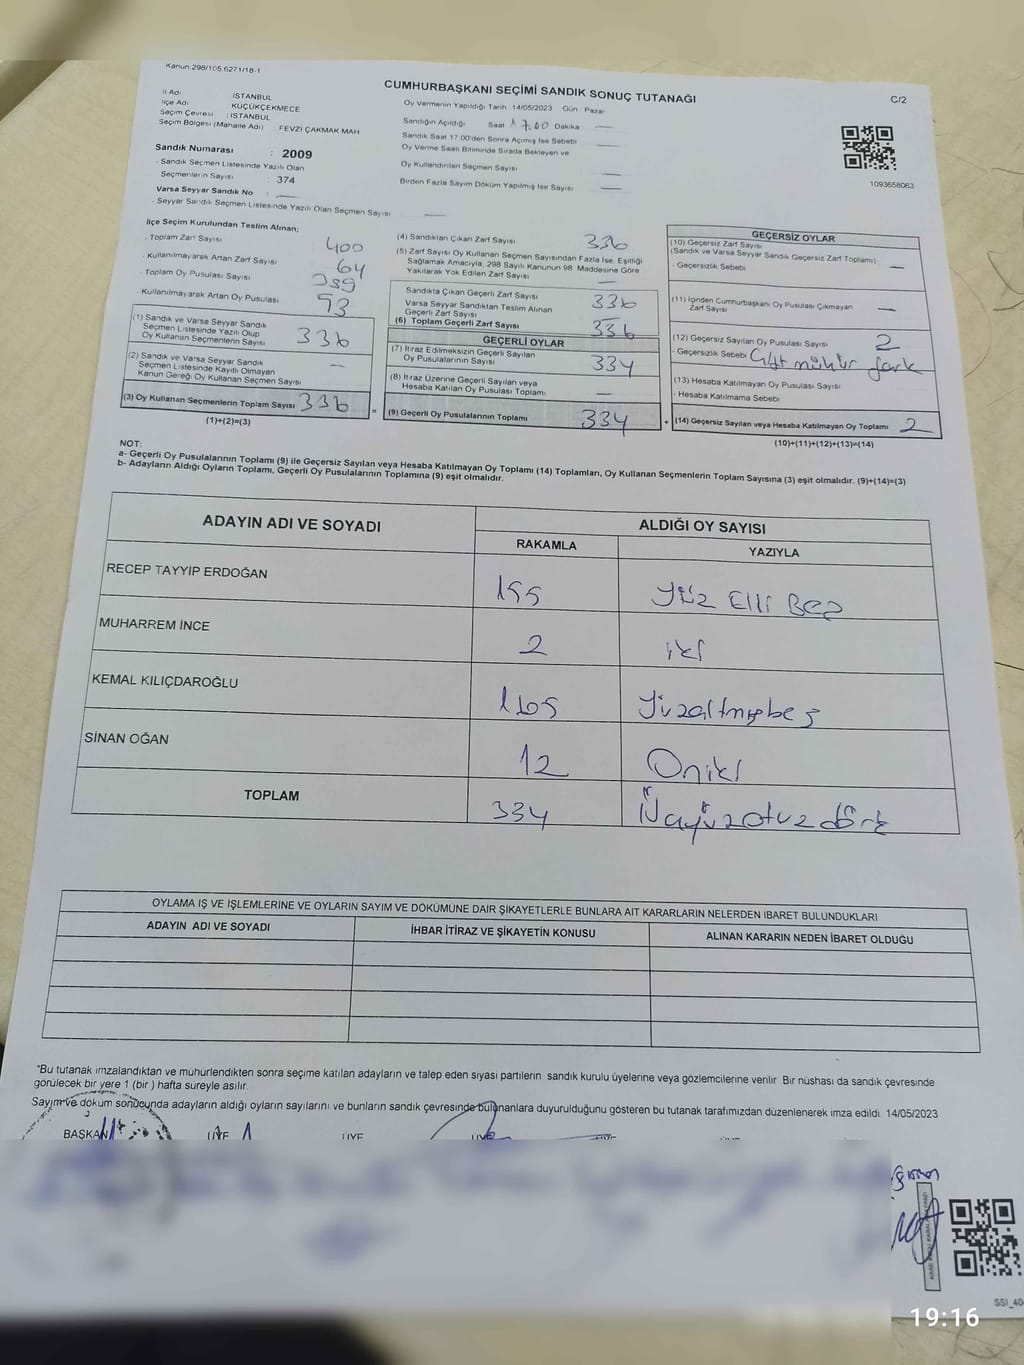 Kanun.298/105.6271/18-1
CUMHURBAŞKANI SEÇİMİ SANDIK SONUÇ TUTANAĞI
C/2
İl Adı : İSTANBUL
İlçe Adı : KÜÇÜKÇEKMECE
Seçim Çevresi : İSTANBUL
Seçim Bölgesi (Mahalle Adı) : FEVZİ ÇAKMAK MAH
Sandık Numarası : 2009
- Sandık Seçmen Listesinde Yazılı Olan
Seçmenlerin Sayısı : 374
Varsa Seyyar Sandık No : —
- Seyyar Sandık Seçmen Listesinde Yazılı Olan Seçmen Sayısı —
Oy Vermenin Yapıldığı Tarih : 14/05/2023 Gün : Pazar
Sandığın Açıldığı Saat 17.00 Dakika —
Sandık Saat 17.00'den Sonra Açılmış İse Sebebi —
Oy Verme Saati Bitiminde Sırada Bekleyen ve
Oy Kullandırılan Seçmen Sayısı —
Birden Fazla Sayım Döküm Yapılmış İse Sayısı —
1093658063
İlçe Seçim Kurulundan Teslim Alınan;
- Toplam Zarf Sayısı 400
- Kullanılmayarak Artan Zarf Sayısı 64
- Toplam Oy Pusulası Sayısı
- Kullanılmayarak Artan Oy Pusulası 53
(1) Sandık ve Varsa Seyyar Sandık
Seçmen Listesinde Yazılı Olup
Oy Kullanan Seçmenlerin Sayısı 336
(2) Sandık ve Varsa Seyyar Sandık
Seçmen Listesinde Kayıtlı Olmayan
Kanun Gereği Oy Kullanan Seçmen Sayısı —
(3) Oy Kullanan Seçmenlerin Toplam Sayısı 336
(1)+(2)=(3)
(4) Sandıktan Çıkan Zarf Sayısı 336
(5) Zarf Sayısı Oy Kullanan Seçmen Sayısından Fazla İse, Eşitliği
Sağlamak Amacıyla, 298 Sayılı Kanunun 98 Maddesine Göre
Yakılarak Yok Edilen Zarf Sayısı —
Sandıkta Çıkan Geçerli Zarf Sayısı 336
Varsa Seyyar Sandıktan Teslim Alınan
Geçerli Zarf Sayısı —
(6) Toplam Geçerli Zarf Sayısı 336
GEÇERLİ OYLAR
(7) İtiraz Edilmeksizin Geçerli Sayılan
Oy Pusulalarının Sayısı 334
(8) İtiraz Üzerine Geçerli Sayılan veya
Hesaba Katılan Oy Pusulası Toplamı —
= (9) Geçerli Oy Pusulalarının Toplamı 334
GEÇERSİZ OYLAR
(10) Geçersiz Zarf Sayısı
(Sandık ve Varsa Seyyar Sandık Geçersiz Zarf Toplamı) —
- Geçersizlik Sebebi
(11) İçinden Cumhurbaşkanı Oy Pusulası Çıkmayan
Zarf Sayısı —
(12) Geçersiz Sayılan Oy Pusulası Sayısı 2
- Geçersizlik Sebebi Çift mühür
(13) Hesaba Katılmayan Oy Pusulası Sayısı
- Hesaba Katılmama Sebebi
+ (14) Geçersiz Sayılan veya Hesaba Katılmayan Oy Toplamı 2
(10)+(11)+(12)+(13)=(14)
NOT:
a- Geçerli Oy Pusulalarının Toplamı (9) ile Geçersiz Sayılan veya Hesaba Katılmayan Oy Toplamı (14) Toplamları, Oy Kullanan Seçmenlerin Toplam Sayısına (3) eşit olmalıdır. (9)+(14)=(3)
b- Adayların Aldığı Oyların Toplamı, Geçerli Oy Pusulalarının Toplamına (9) eşit olmalıdır.
ADAYIN ADI VE SOYADI ALDIĞI OY SAYISI
RAKAMLA YAZIYLA
RECEP TAYYİP ERDOĞAN 155 Yüz Elli Beş
MUHARREM İNCE 2 iki
KEMAL KILIÇDAROĞLU 165 Yüzaltmışbeş
SİNAN OĞAN 12 Oniki
TOPLAM 334 Üçyüzotuzdört
OYLAMA İŞ VE İŞLEMLERİNE VE OYLARIN SAYIM VE DÖKÜMÜNE DAİR ŞİKAYETLERLE BUNLARA AİT KARARLARIN NELERDEN İBARET BULUNDUKLARI
ADAYIN ADI VE SOYADI İHBAR İTİRAZ VE ŞİKAYETİN KONUSU ALINAN KARARIN NEDEN İBARET OLDUĞU
*Bu tutanak imzalandıktan ve mühürlendikten sonra seçime katılan adayların ve talep eden siyasi partilerin sandık kurulu üyelerine veya gözlemcilerine verilir. Bir nüshası da sandık çevresinde
görülecek bir yere 1 (bir ) hafta süreyle asılır.
Sayım ve döküm sonucunda adayların aldığı oyların sayılarını ve bunların sandık çevresinde bulunanlara duyurulduğunu gösteren bu tutanak tarafımızdan düzenlenerek imza edildi. 14/05/2023
BAŞKAN ÜYE ÜYE ÜYE ÜYE
19:16